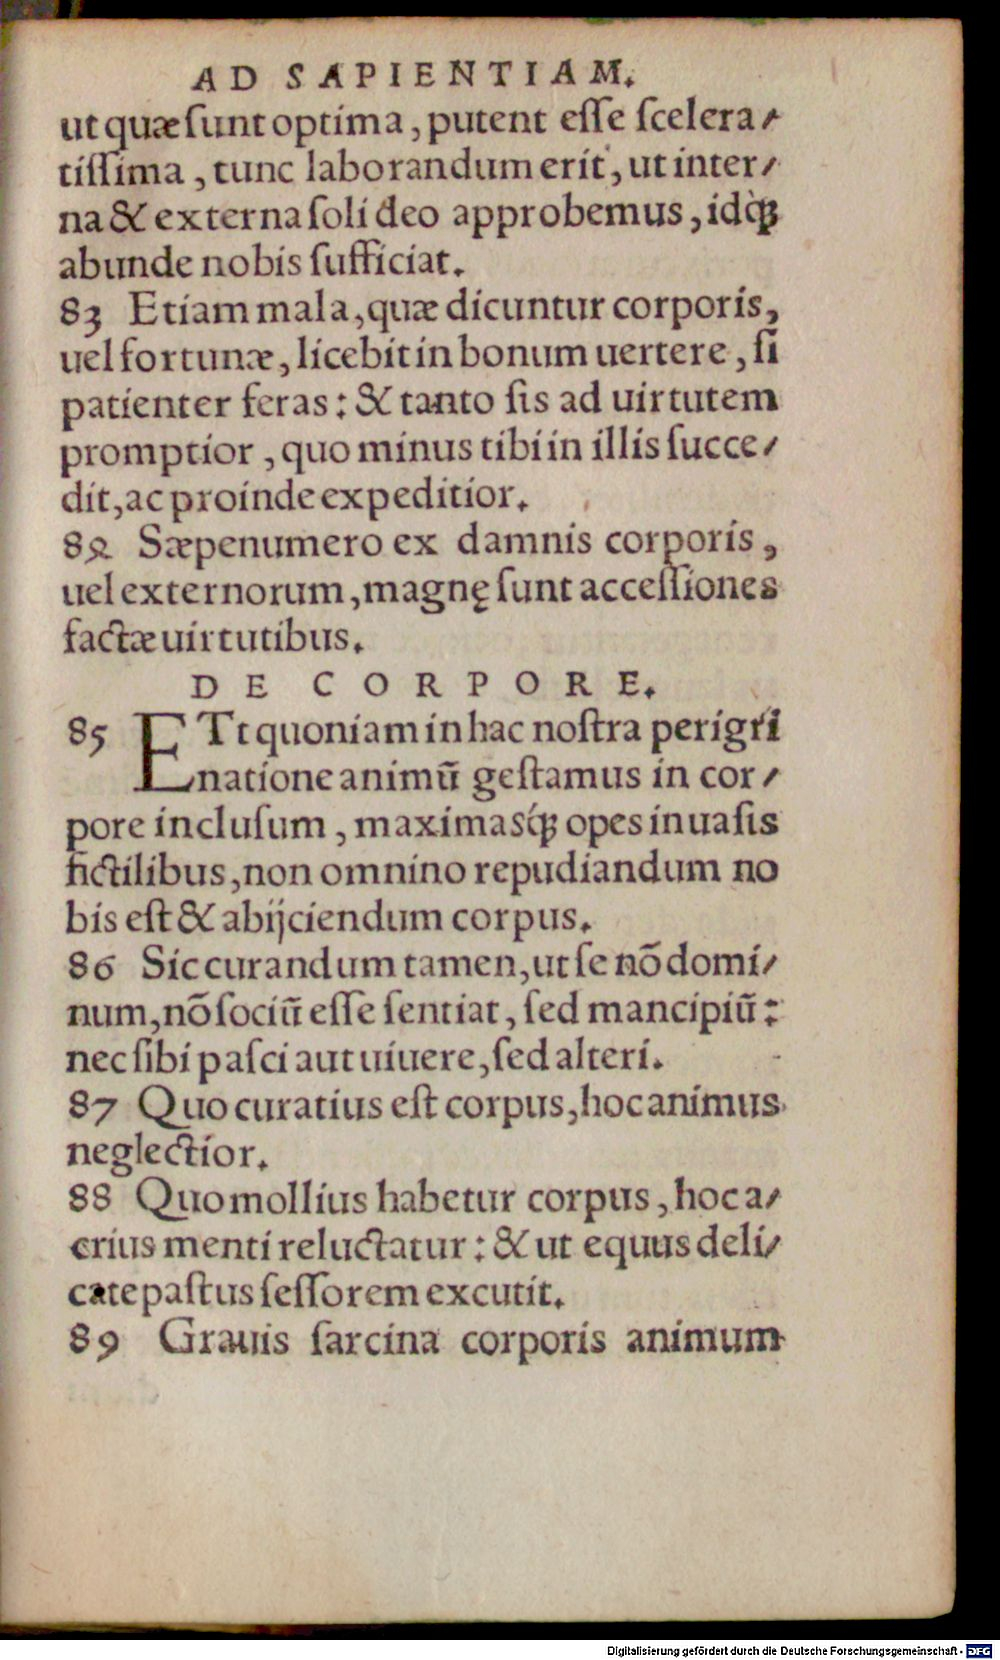 AD SAPIENTIAM.
ut quæ ſunt optima, putent eſſe ſcelera⸗
tiſſima, tunc laborandum erit, ut inter⸗
na & externa ſoli deo approbemus, idq́ꝫ
abunde nobis ſufficiat.
83 Etiam mala, quæ dicuntur corporis,
uel fortunæ, licebit in bonum uertere, ſi
patienter feras: & tanto ſis ad uirtutem
promptior, quo minus tibi in illis ſucce⸗
dit, ac proinde expeditior.
82 Sæpenumero ex damnis corporis,
uel externorum, magnę ſunt acceſſiones
factæ uirtutibus.
DE CORPORE.
85 ETt quoniam in hac noſtra perigri
natione animũ geſtamus in cor⸗
pore incluſum, maximasq́ꝫ opes in uaſis
fictilibus, non omnino repudiandum no
bis eſt & abijciendum corpus.
86 Sic curandum tamen, ut ſe nõ domi⸗
num, nõ ſociũ eſſe ſentiat, ſed mancipiũ:
nec ſibi paſci aut uiuere, ſed alteri.
87 Quo curatius eſt corpus, hoc animus
neglectior.
88 Quo mollius habetur corpus, hoc a⸗
crius menti reluctatur: & ut equus deli⸗
cate paſtus ſeſſorem excutit.
89 Grauis ſarcina corporis animum
Digitalisierung gefördert durch die Deutsche Forschungsgemeinschaft - DFG